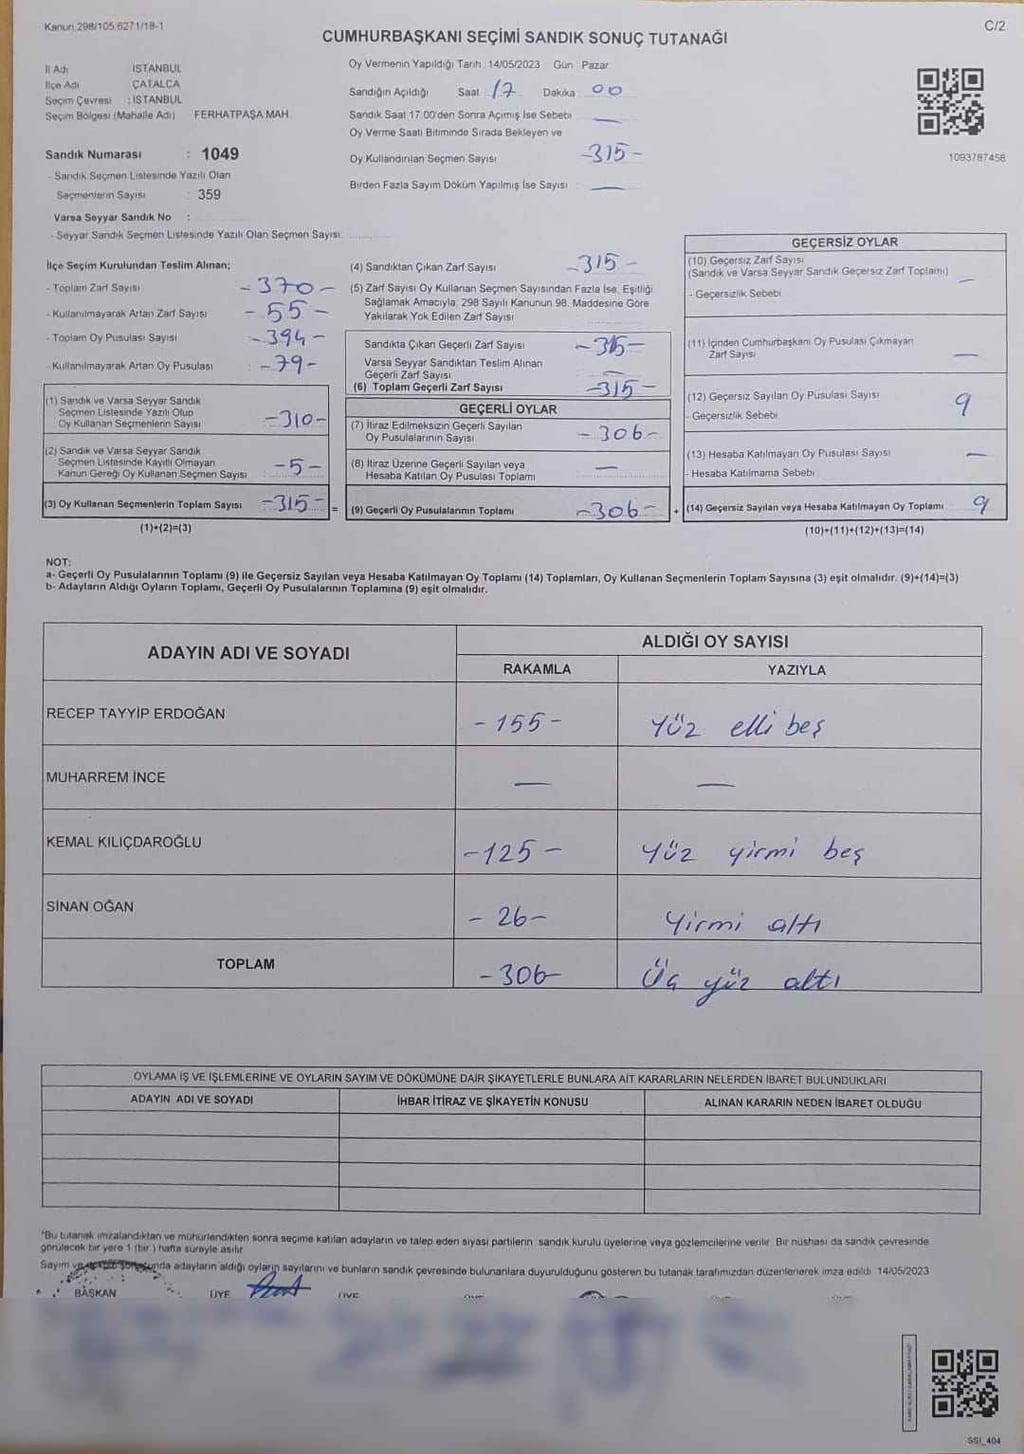 Kanun 298/105,6271/18-1
C/2
CUMHURBAŞKANI SEÇİMİ SANDIK SONUÇ TUTANAĞI
İl Adı İSTANBUL
İlçe Adı ÇATALCA
Seçim Çevresi : İSTANBUL
Seçim Bölgesi (Mahalle Adı) FERHATPAŞA MAH.
Oy Vermenin Yapıldığı Tarih : 14/05/2023 Gün Pazar
Sandığın Açıldığı Saat 17 Dakika 00
Sandık Saat 17.00'den Sonra Açımış İse Sebebi —
Oy Verme Saati Bitiminde Sırada Bekleyen ve
Oy Kullandırılan Seçmen Sayısı -315-
Birden Fazla Sayım Döküm Yapılmış İse Sayısı —
1093787458
Sandık Numarası : 1049
- Sandık Seçmen Listesinde Yazılı Olan
Seçmenlerin Sayısı : 359
Varsa Seyyar Sandık No :
- Seyyar Sandık Seçmen Listesinde Yazılı Olan Seçmen Sayısı
İlçe Seçim Kurulundan Teslim Alınan;
- Toplam Zarf Sayısı -370-
- Kullanılmayarak Artan Zarf Sayısı -55-
- Toplam Oy Pusulası Sayısı -394-
- Kullanılmayarak Artan Oy Pusulası -79-
(1) Sandık ve Varsa Seyyar Sandık
Seçmen Listesinde Yazılı Olup
Oy Kullanan Seçmenlerin Sayısı -310-
(2) Sandık ve Varsa Seyyar Sandık
Seçmen Listesinde Kayıtlı Olmayan
Kanun Gereği Oy Kullanan Seçmen Sayısı -5-
(3) Oy Kullanan Seçmenlerin Toplam Sayısı -315- =
(1)+(2)=(3)
(4) Sandıktan Çıkan Zarf Sayısı -315-
(5) Zarf Sayısı Oy Kullanan Seçmen Sayısından Fazla İse, Eşitliği
Sağlamak Amacıyla; 298 Sayılı Kanunun 98. Maddesine Göre
Yakılarak Yok Edilen Zarf Sayısı
Sandıkta Çıkan Geçerli Zarf Sayısı -315-
Varsa Seyyar Sandıktan Teslim Alınan
Geçerli Zarf Sayısı —
(6) Toplam Geçerli Zarf Sayısı -315-
GEÇERLİ OYLAR
(7) İtiraz Edilmeksizin Geçerli Sayılan
Oy Pusulalarının Sayısı -306-
(8) İtiraz Üzerine Geçerli Sayılan veya
Hesaba Katılan Oy Pusulası Toplamı —
(9) Geçerli Oy Pusulalarının Toplamı -306- +
GEÇERSİZ OYLAR
(10) Geçersiz Zarf Sayısı
(Sandık ve Varsa Seyyar Sandık Geçersiz Zarf Toplamı) —
- Geçersizlik Sebebi
(11) İçinden Cumhurbaşkanı Oy Pusulası Çıkmayan
Zarf Sayısı —
(12) Geçersiz Sayılan Oy Pusulası Sayısı 9
- Geçersizlik Sebebi
(13) Hesaba Katılmayan Oy Pusulası Sayısı —
- Hesaba Katılmama Sebebi
(14) Geçersiz Sayılan veya Hesaba Katılmayan Oy Toplamı 9
(10)+(11)+(12)+(13)=(14)
NOT:
a- Geçerli Oy Pusulalarının Toplamı (9) ile Geçersiz Sayılan veya Hesaba Katılmayan Oy Toplamı (14) Toplamları, Oy Kullanan Seçmenlerin Toplam Sayısına (3) eşit olmalıdır. (9)+(14)=(3)
b- Adayların Aldığı Oyların Toplamı, Geçerli Oy Pusulalarının Toplamına (9) eşit olmalıdır.
ADAYIN ADI VE SOYADI
ALDIĞI OY SAYISI
RAKAMLA YAZIYLA
RECEP TAYYİP ERDOĞAN -155- Yüz elli beş
MUHARREM İNCE — —
KEMAL KILIÇDAROĞLU -125- Yüz yirmi beş
SİNAN OĞAN -26- Yirmi altı
TOPLAM -306- Üç yüz altı
OYLAMA İŞ VE İŞLEMLERİNE VE OYLARIN SAYIM VE DÖKÜMÜNE DAİR ŞİKAYETLERLE BUNLARA AİT KARARLARIN NELERDEN İBARET BULUNDUKLARI
ADAYIN ADI VE SOYADI İHBAR İTİRAZ VE ŞİKAYETİN KONUSU ALINAN KARARIN NEDEN İBARET OLDUĞU
*Bu tutanak imzalandıktan ve mühürlendikten sonra seçime katılan adayların ve talep eden siyasi partilerin sandık kurulu üyelerine veya gözlemcilerine verilir. Bir nüshası da sandık çevresinde
görülecek bir yere 1 (bir) hafta süreyle asılır
Sayım ve adayların aldığı oyların sayılarını ve bunların sandık çevresinde bulunanlara duyurulduğunu gösteren bu tutanak tarafımızdan düzenlenerek imza edildi. 14/05/2023
BAŞKAN ÜYE ÜYE
SSI_404